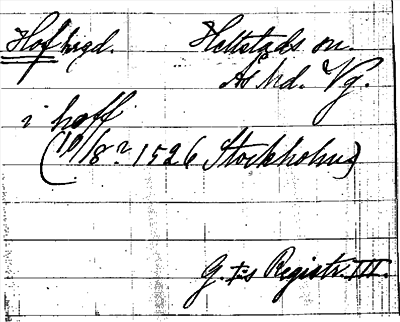 Hof bigd. Hellstads sn.
Ås hd. Vg.
i hoff
(10/8? 1526 Stockholm)
G. I:s Registr. III.